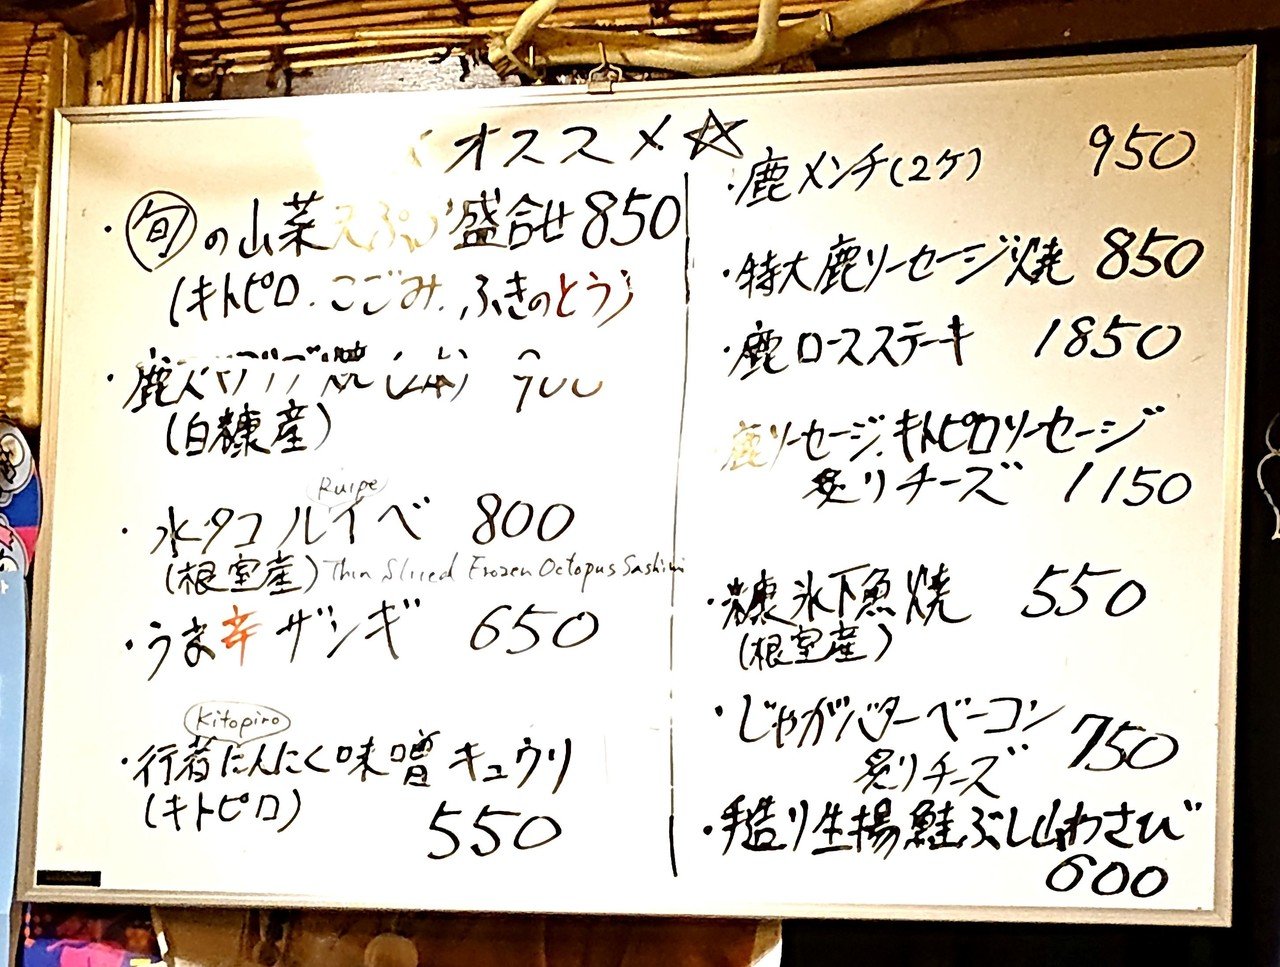 オススメ☆
・旬の山菜天ぷら盛合せ 850
(キトピロ.こごみ.ふきのとう)
・鹿 焼 900
(白糠産)
Ruipe
・水タコルイベ 800
(根室産) Thin Sliced Frozen Octopus Sashimi
・うま辛ザンギ 650
Kitopiro
・行者にんにく味噌キュウリ
(キトピロ) 550
・鹿メンチ(2ケ) 950
・特大鹿ソーセージ焼 850
・鹿ロースステーキ 1850
鹿ソーセージ.キトピロソーセージ
炙りチーズ 1150
・糠氷下魚焼 550
(根室産)
・じゃがバターベーコン
炙りチーズ 750
・手造り生揚鮭ぶし山わさび
600